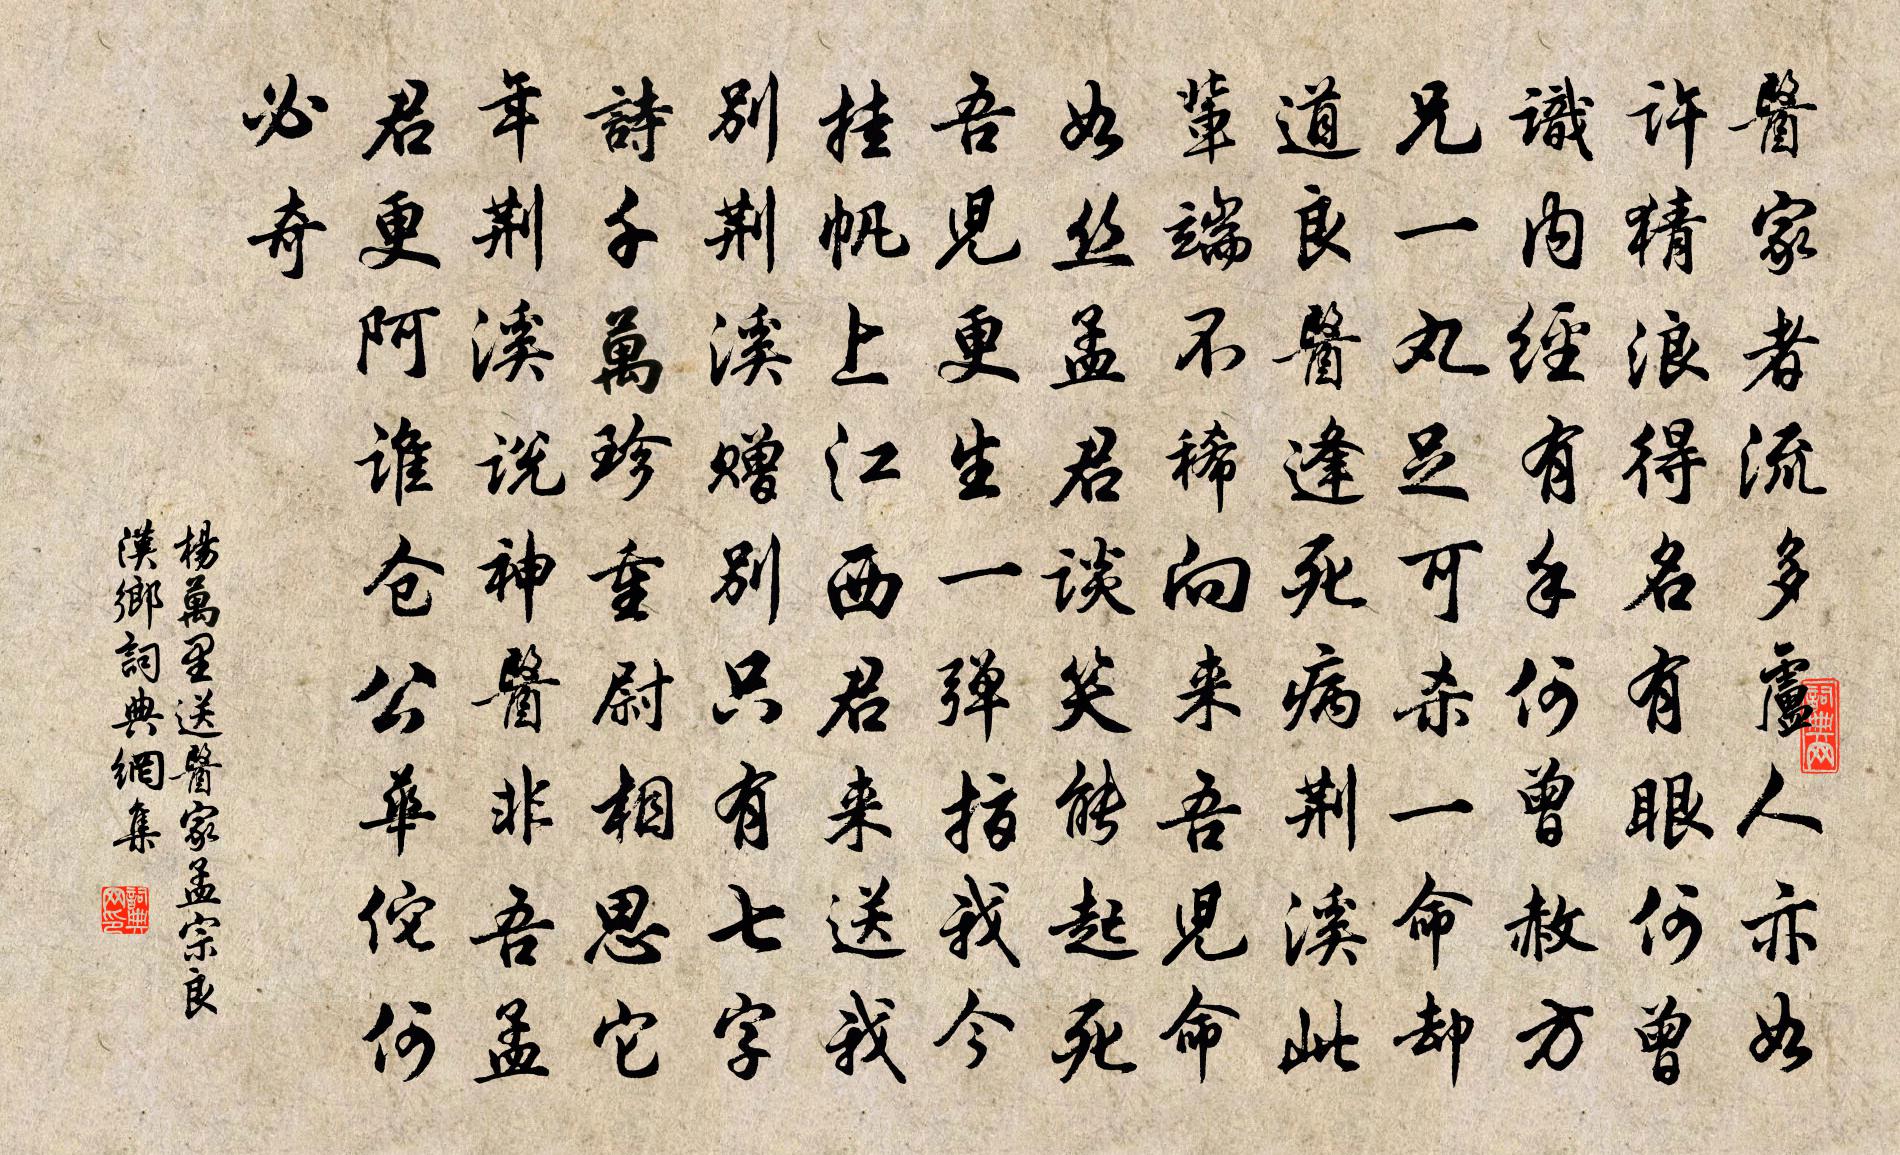 醫家者流多盧人亦如
許精浪得名有眼何曾
識内經有手何曾赦方
兄一丸足可杀一命却
道良醫逢死病荆溪此
輩端不稀向来吾兒命
如丝孟君谈笑能起死
吾兒更生一弹指我今
挂帆上江西君来送我
别荆溪赠别只有七字
詩千萬珍重尉相思它
年荆溪説神醫非吾孟
君更阿誰仓公華佗何
必奇
楊萬里送醫家孟宗良
漢鄉詞典網集
詞典网
詞典网印